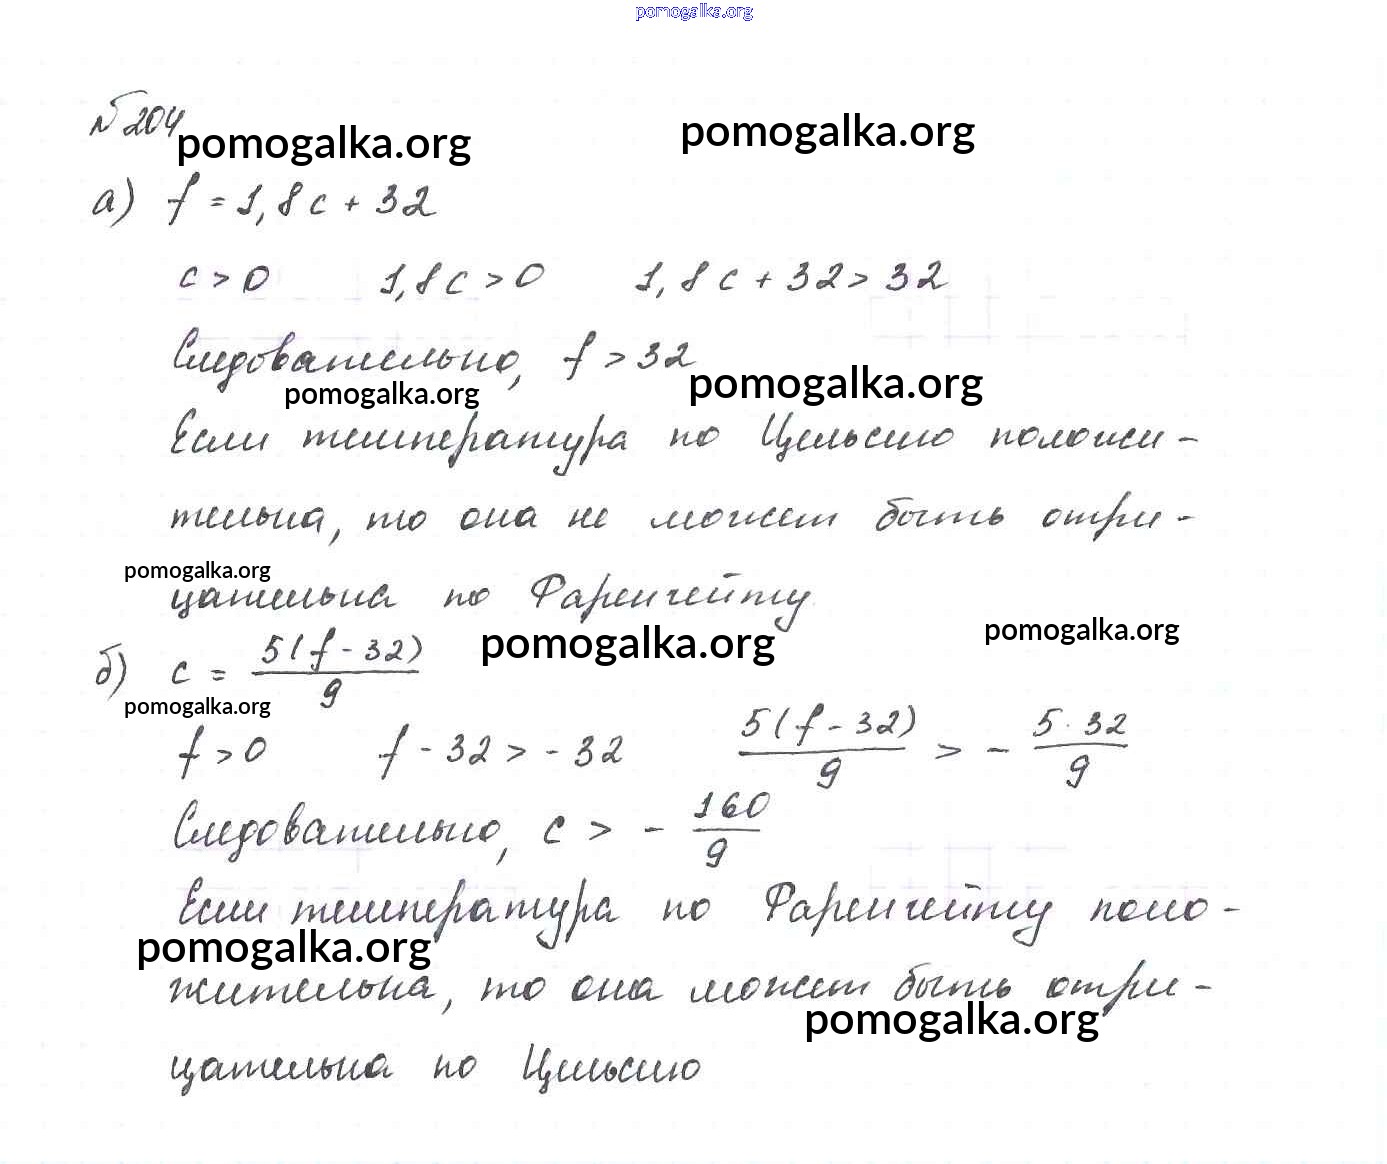 pomogalka.org
№ 204
pomogalka.org pomogalka.org
а) f = 1,8c + 32
c > 0 1,8c > 0 1,8c + 32 > 32
Следовательно, f > 32
pomogalka.org pomogalka.org
Если температура по Цельсию положи-
тельна, то она не может быть отри-
pomogalka.org
цательна по Фаренгейту
pomogalka.org pomogalka.org
б) c = 5(f - 32)/9
pomogalka.org
f > 0 f - 32 > - 32 5(f - 32)/9 > - 5 · 32/9
Следовательно, c > - 160/9
Если температура по Фаренгейту поло-
pomogalka.org
жительна, то она может быть отри-
pomogalka.org
цательна по Цельсию